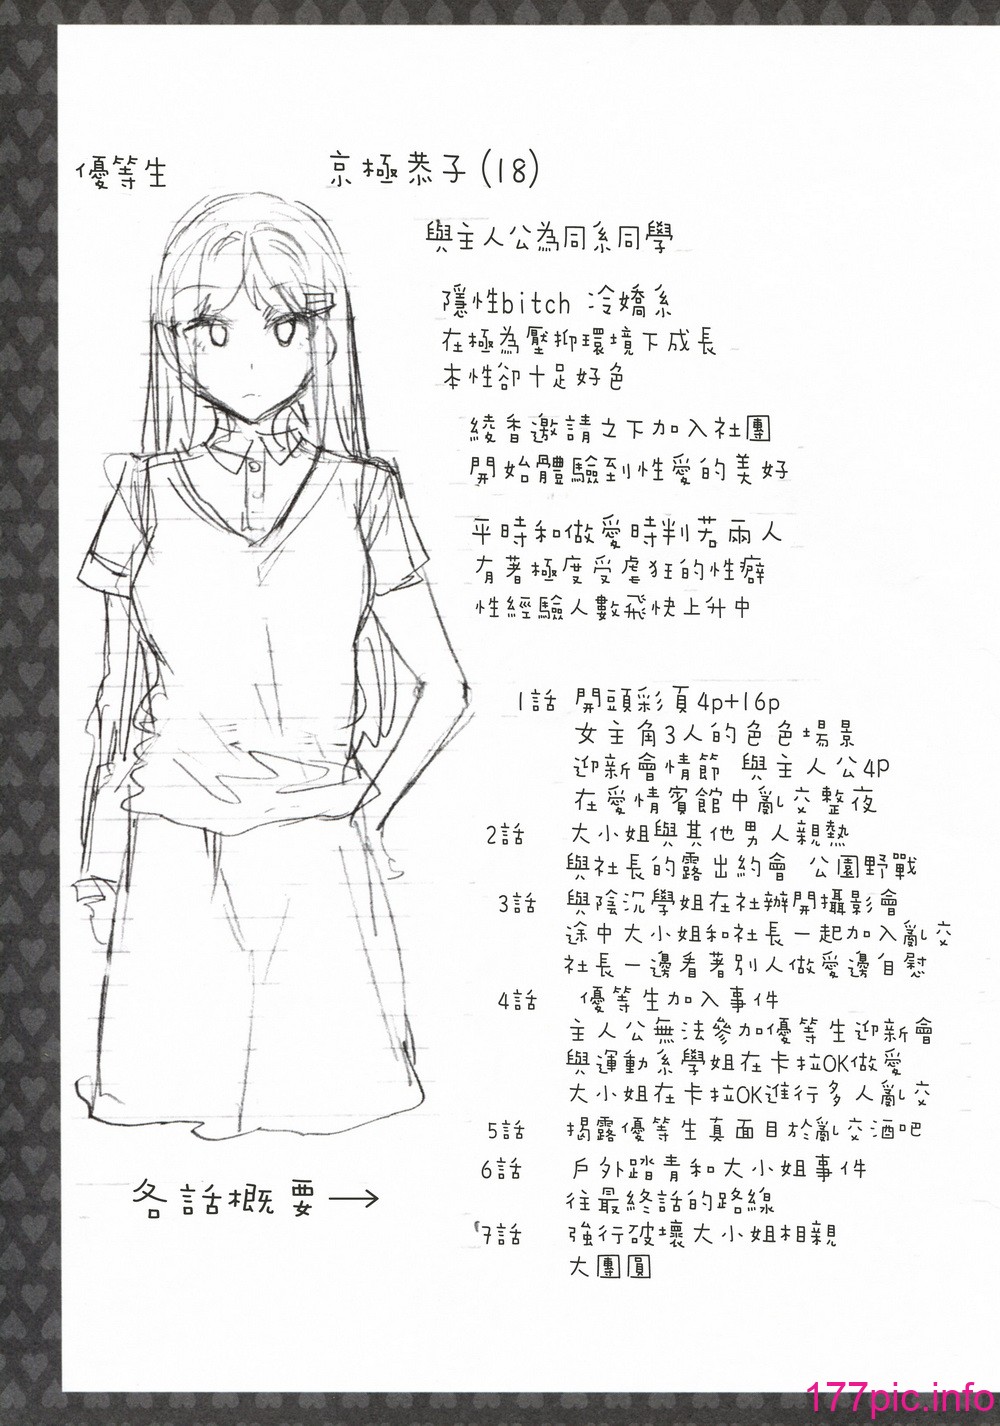 優等生
京極恭子(18)
與主人公為同系同學
隱性bitch 冷嬌系
在極為壓抑環境下成長
本性卻十足好色
綾香邀請之下加入社團
開始體驗到性愛的美好
平時和做愛時判若兩人
有著極度受虐狂的性癖
性經驗人數飛快上升中
1話 開頭彩頁4p+16p
女主角3人的色色場景
迎新會情節 與主人公4P
在愛情賓館中亂交整夜
2話 大小姐與其他男人親熱
與社長的露出約會 公園野戰
3話 與陰沉學姐在社辦開攝影會
途中大小姐和社長一起加入亂交
社長一邊看著別人做愛邊自慰
4話 優等生加入事件
主人公無法參加優等生迎新會
與運動系學姐在卡拉OK做愛
大小姐在卡拉OK進行多人亂交
5話 揭露優等生真面目於亂交酒吧
6話 戶外踏青和大小姐事件
往最終話的路線
7話 強行破壞大小姐相親
大團圓
各話概要→
177pic.info